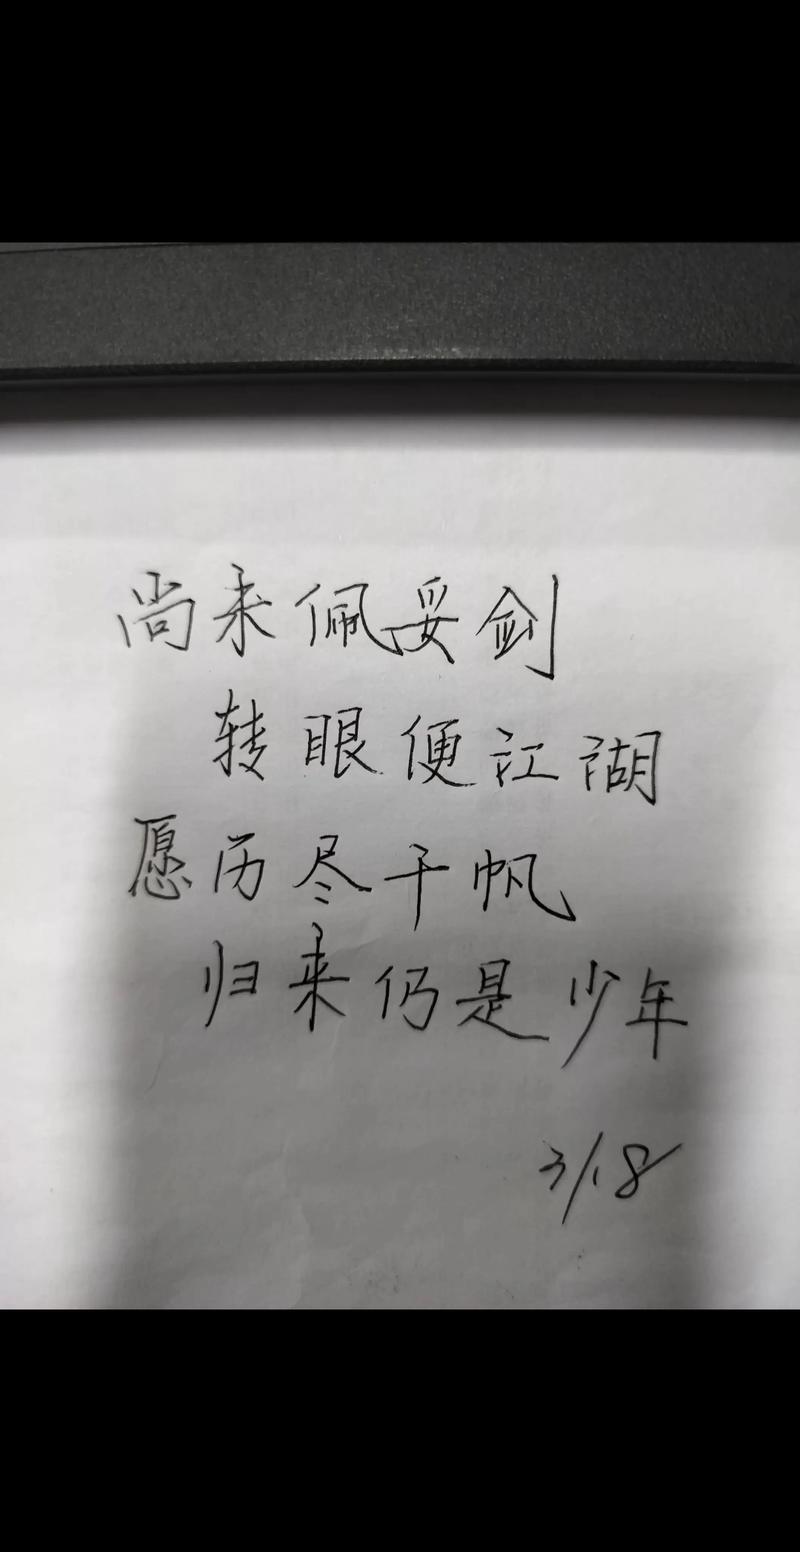 尚未佩妥剑
转眼便江湖
愿历尽千帆
归来仍是少年
3/18